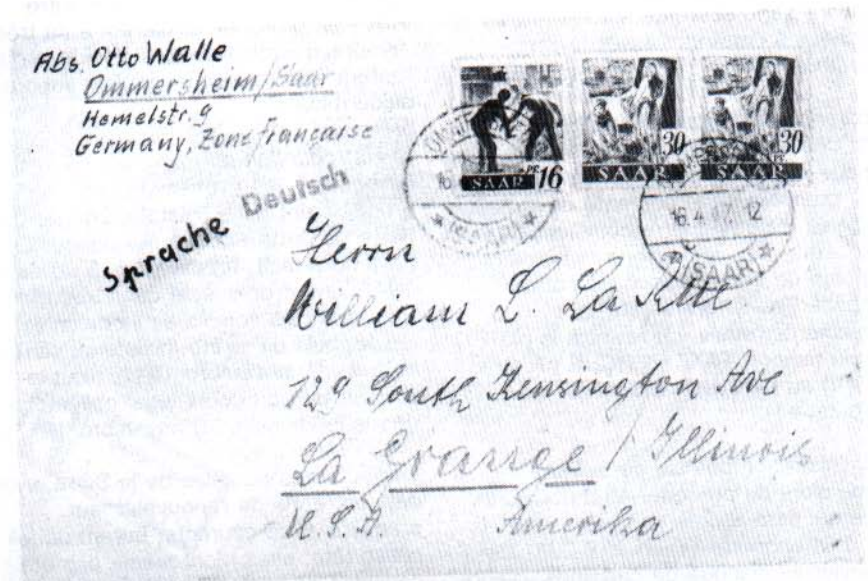 Abs. Otto Walle
Ommersheim/Saar
Hemelstr. 9
Germany, Zone française
Sprache Deutsch
SAAR PF 16
SAAR 30
SAAR PF 30
16.4.47. 12
(SAAR)
(SAAR)
Herrn
William L. La
129 South Kensington Ave
La Grange / Illinois
U.S.A. Amerika